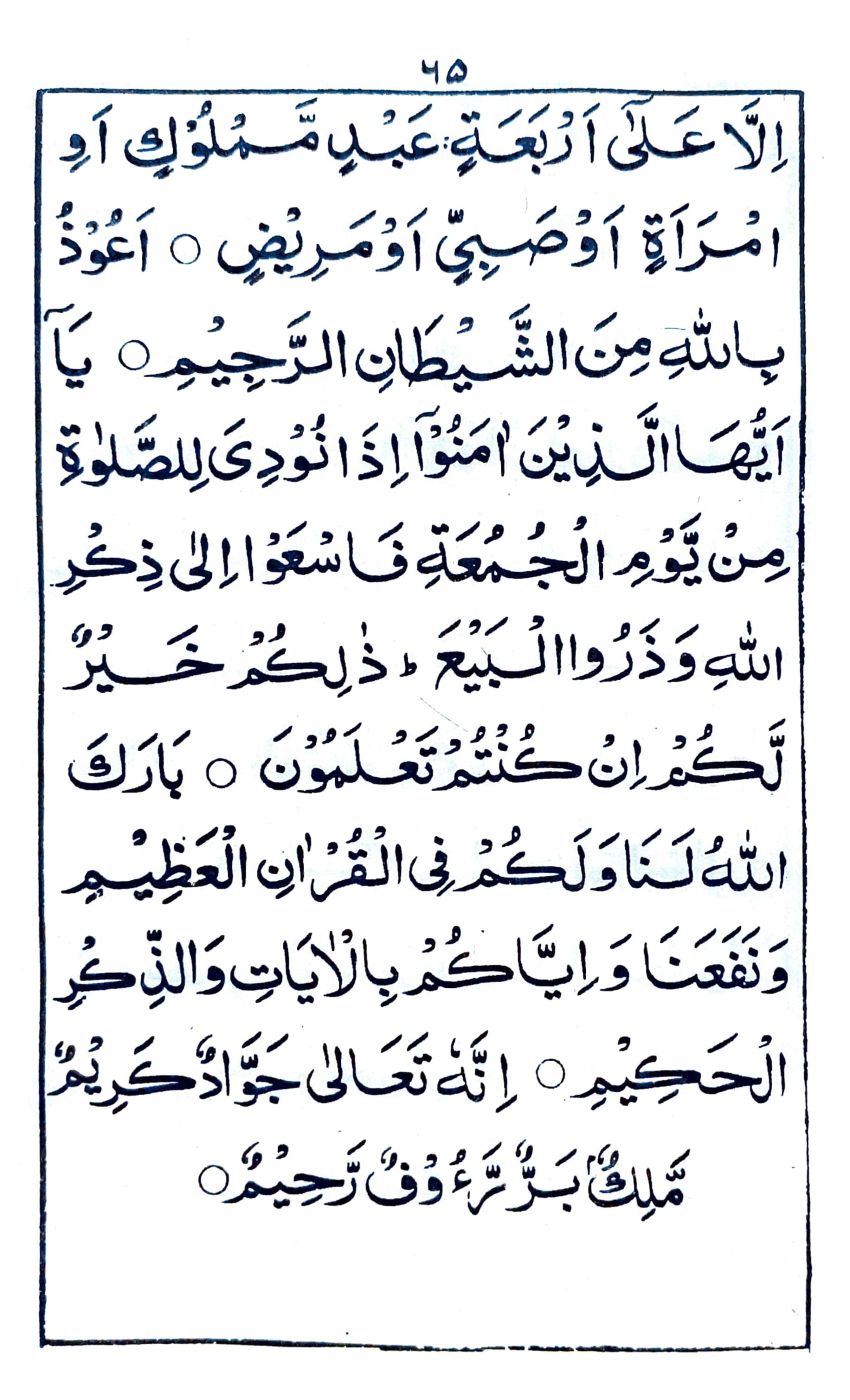 ۶۵
اِلَّا عَلٰٓى اَرْبَعَةٍ: عَبْدٍ مَّمْلُوْكٍ اَوِ
امْرَاَةٍ اَوْ صَبِيٍّ اَوْ مَرِيْضٍ ○ اَعُوْذُ
بِاللّٰهِ مِنَ الشَّيْطَانِ الرَّجِيْمِ ○ يَآ
اَيُّهَا الَّذِيْنَ اٰمَنُوْٓا اِذَا نُوْدِىَ لِلصَّلٰوةِ
مِنْ يَّوْمِ الْجُمُعَةِ فَاسْعَوْا اِلٰى ذِكْرِ
اللّٰهِ وَذَرُوا الْبَيْعَ ؕ ذٰلِكُمْ خَيْرٌ
لَّكُمْ اِنْ كُنْتُمْ تَعْلَمُوْنَ ○ بَارَكَ
اللّٰهُ لَنَا وَلَكُمْ فِى الْقُرْاٰنِ الْعَظِيْمِ
وَنَفَعَنَا وَاِيَّاكُمْ بِالْاٰيَاتِ وَالذِّكْرِ
الْحَكِيْمِ ○ اِنَّهٗ تَعَالٰى جَوَّادٌ كَرِيْمٌ
مَّلِكٌۢ بَرٌّ رَّءُوْفٌ رَّحِيْمٌ ○